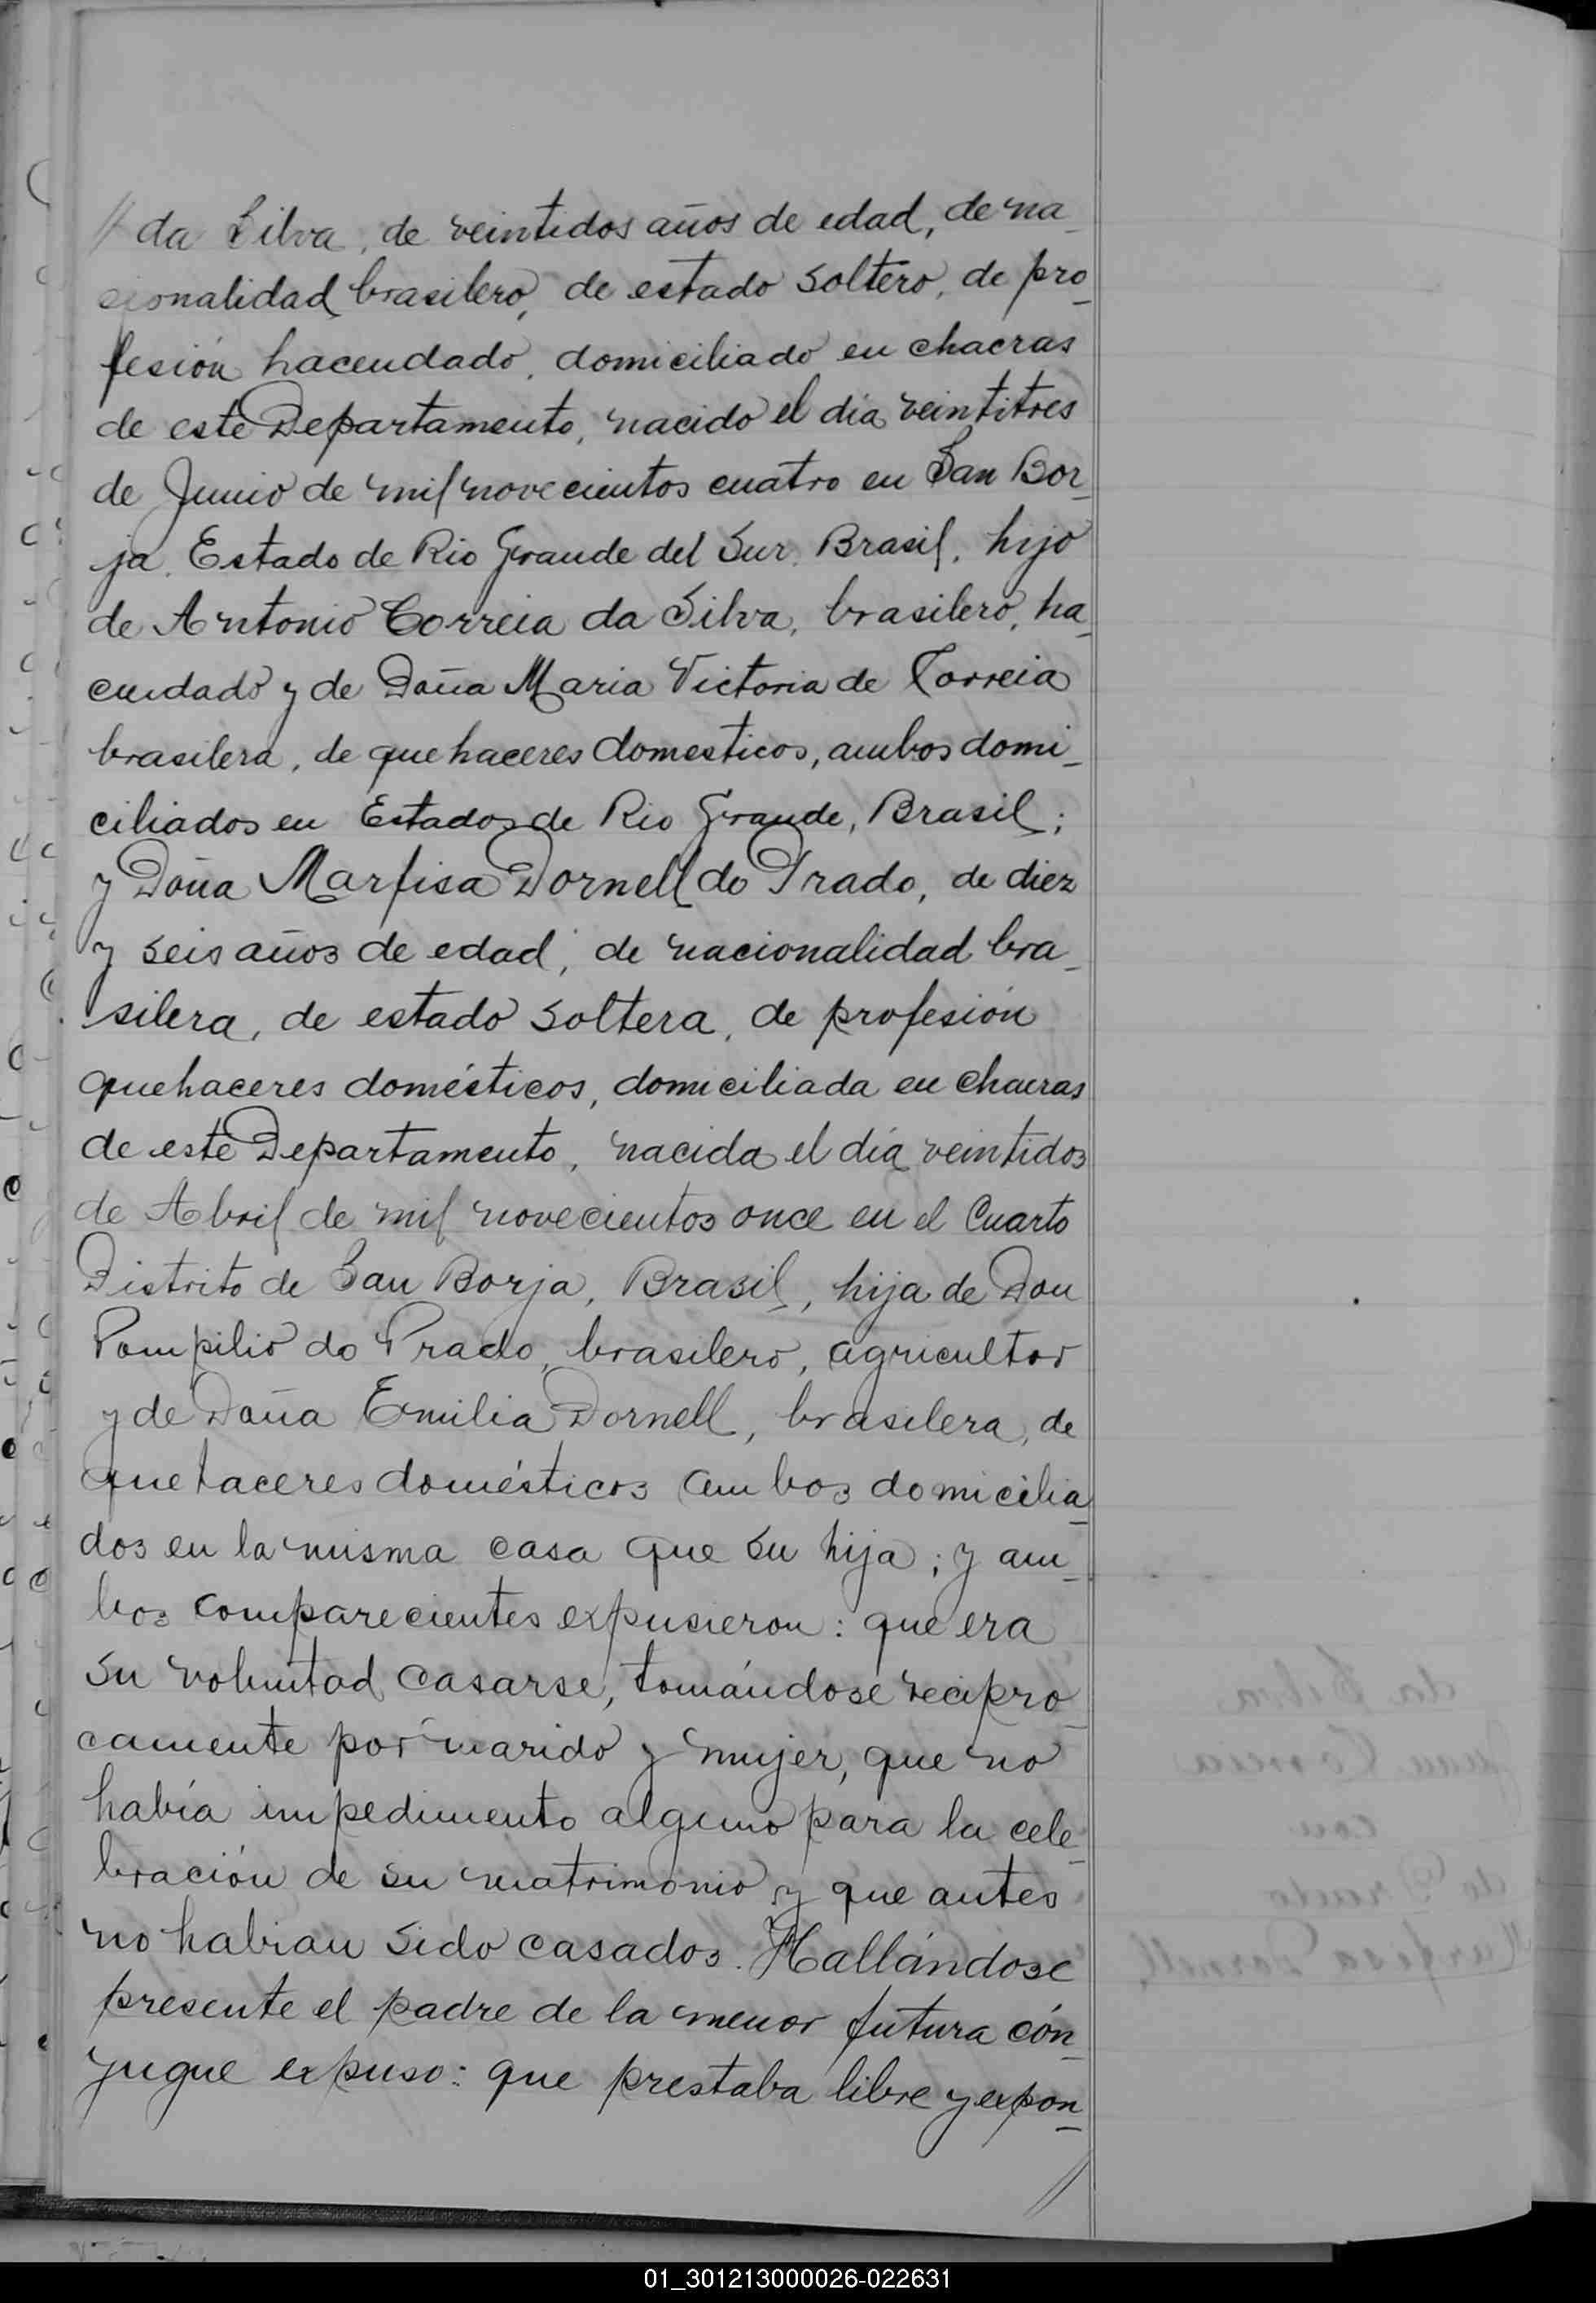 // da Silva, de veintidos años de edad, de na_
cionalidad brasilero, de estado soltero, de pro_
fesión hacendado, domiciliado en chacras
de este Departamento, nacido el día veintitres
de Junio de mil novecientos cuatro en San Bor_
ja. Estado de Rio Grande del Sur. Brasil, hijo
de Antonio Correia da Silva, brasilero, ha_
cendado y de Doña Maria Victoria de Correia
brasilera, de quehaceres domesticos, ambos domi_
ciliados en Estados de Rio Grande, Brasil;
y Doña Marfisa Dornell do Prado, de diez
y seis años de edad, de nacionalidad bra_
silera, de estado soltera, de profesión
quehaceres domésticos, domiciliada en chacras
de este Departamento, nacida el día veintidos
de Abril de mil novecientos once en el Cuarto
Distrito de San Borja, Brasil, hija de Don
Pompilio do Prado, brasilero, agricultor
y de Doña Emilia Dornell, brasilera, de
quehaceres domésticos ambos domicilia_
dos en la misma casa que su hija; y am_
bos comparecientes expusieron: que era
su voluntad casarse, tomándose recipro_
camente por marido y mujer, que no
había impedimento alguno para la cele_
bración de su matrimonio y que antes
no habian sido casados. Hallándose
presente el padre de la menor futura cón_
yugue expuso: que prestaba libre y expon_
//
da Silva
Juan Correia
con
do Prado
Marfisa Dornell
01_301213000026-022631